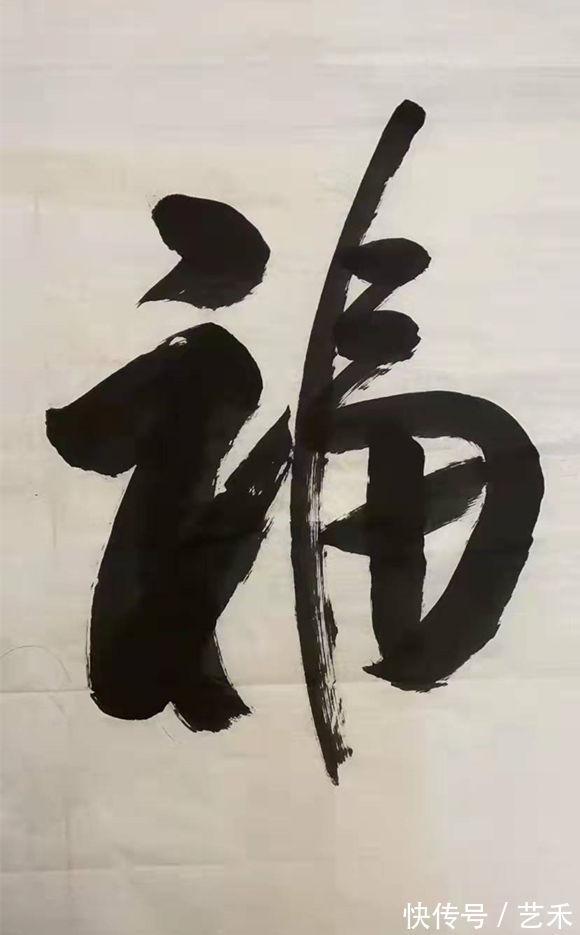 福
快传号/艺禾